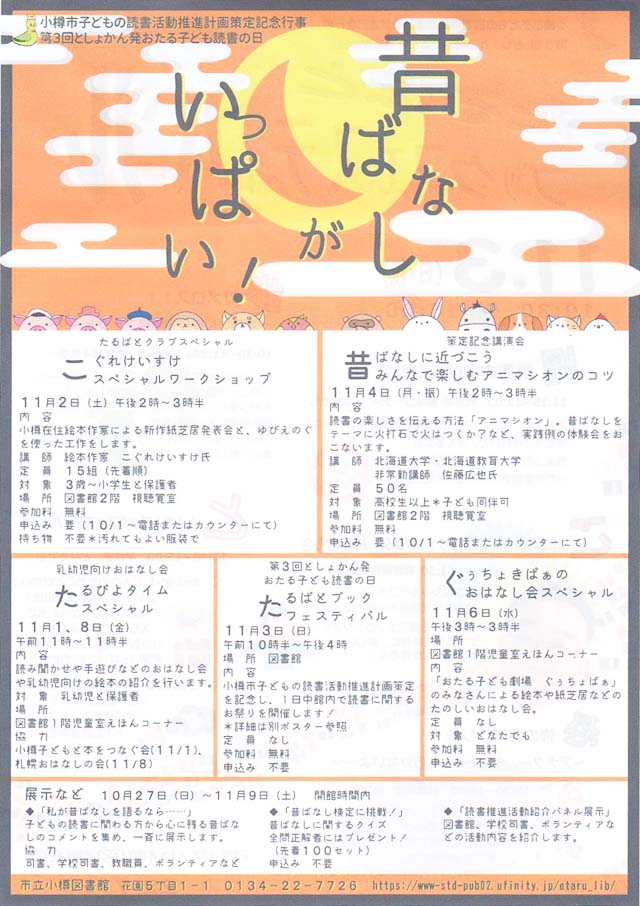 小樽市子どもの読書活動推進計画策定記念行事
第3回としょかん発おたる子ども読書の日
昔ばなしが
いっぱい!
たるばとクラブスペシャル
こぐれけいすけ
スペシャルワークショップ
11月2日(土)午後2時~3時半
内 容
小樽在住絵本作家による新作紙芝居発表会と、ゆびえのぐ
を使った工作をします。
講 師 絵本作家 こぐれけいすけ氏
定 員 15組(先着順)
対 象 3歳~小学生と保護者
場 所 図書館2階 視聴覚室
参加料 無料
申込み 要(10/1~電話またはカウンターにて)
持ち物 不要*汚れてもよい服装で
策定記念講演会
昔ばなしに近づこう
みんなで楽しむアニマシオンのコツ
11月4日(月・振)午後2時~3時半
内 容
読書の楽しさを伝える方法「アニマシオン」。昔ばなしを
テーマに火打石で火はつくか?など、実践例の体験会をお
こないます。
講 師 北海道大学・北海道教育大学
非常勤講師 佐藤広也氏
定 員 50名
対 象 高校生以上*子ども同伴可
場 所 図書館2階 視聴覚室
参加料 無料
申込み 要(10/1~電話またはカウンターにて)
乳幼児向けおはなし会
たるぴよタイム
スペシャル
11月1、8日(金)
午前11時~11時半
内 容
読み聞かせや手遊びなどのおはなし会
や乳幼児向けの絵本の紹介を行います。
対 象 乳幼児と保護者
場 所
図書館1階児童室えほんコーナー
協 力
小樽子どもと本をつなぐ会(11/1)、
札幌おはなしの会(11/8)
第3回としょかん発
おたる子ども読書の日
たるばとブック
フェスティバル
11月3日(日)
午前10時半~午後4時
場 所 図書館
内 容
小樽市子どもの読書活動推進計画策定
を記念し、1日中館内で読書に関する
お祭りを開催します!
*詳細は別ポスター参照
定 員 なし
参加料 無料
申込み 不要
ぐぅちょきぱぁの
おはなし会スペシャル
11月6日(水)
午後3時~3時半
場 所
図書館1階児童室えほんコーナー
内 容
「おたる子ども劇場 ぐぅちょぱぁ」
のみなさんによる絵本や紙芝居などの
たのしいおはなし会。
定 員 なし
対 象 どなたでも
参加料 無料
申込み 不要
展示など 10月27日(日)~11月9日(土) 開館時間内
◆「私が昔ばなしを語るなら……」
子どもの読書に関わる方から心に残る昔ばな
しのコメントを集め、一斉に展示します。
協 力
司書、学校司書、教職員、ボランティアなど
◆「昔ばなし検定に挑戦!」
昔ばなしに関するクイズ
全問正解者にはプレゼント!
(先着100セット)
申込み 不要
◆「読書推進活動紹介パネル展示」
図書館、学校司書、ボランティアな
どの活動内容を紹介します。
市立小樽図書館 花園5丁目1-1 0134-22-7726 https://www-std-pub02.ufinity.jp/otaru_lib/